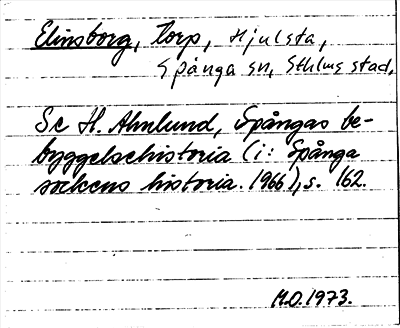 Elinsborg, Torp, Hjulsta,
Spånga sn, Sthlms stad.
Se H. Ahnlund, Spångas be-
byggelsehistoria (i: Spånga
sockens historia. 1966), s. 162.
M.O. 1973.